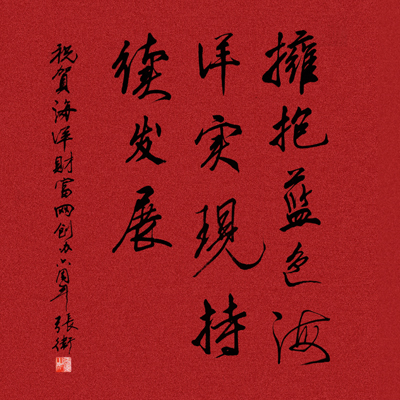 擁抱蓝色海
洋实現持
续发展
祝賀海洋財富网创办六周年 张衛